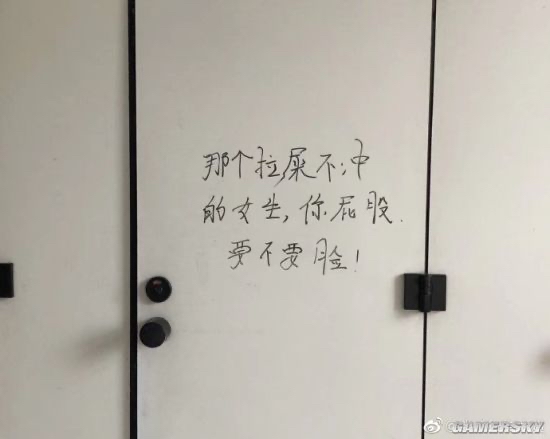 那个拉屎不冲
的女生,你屁股
要不要脸!
GAMERSKY